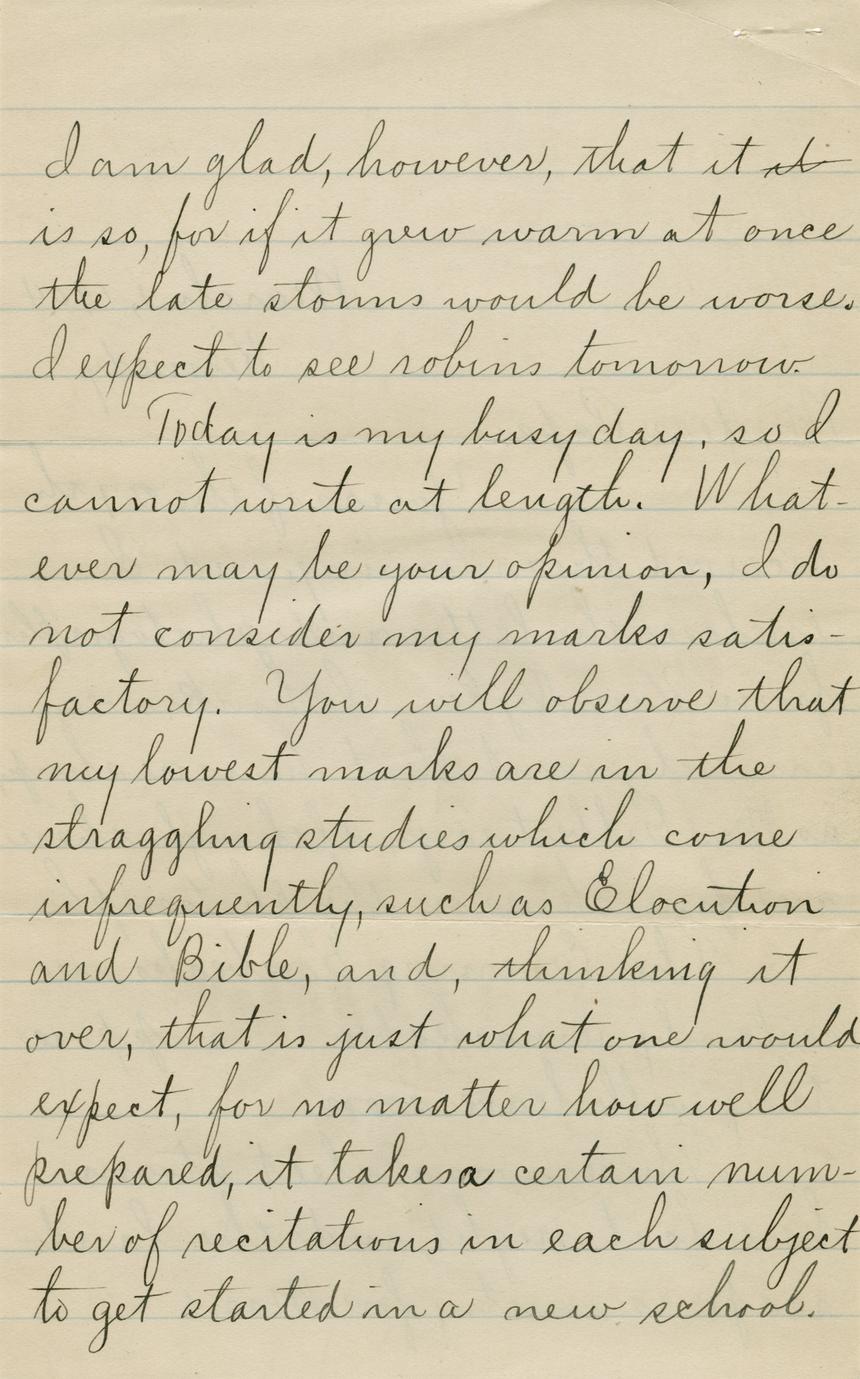 I am glad, however, that it it
is so, for if it grew warm at once
the late storms would be worse.
I expect to see robins tomorrow.
Today is my busy day, so I
cannot write at length. What-
ever may be your opinion, I do
not consider my marks satis-
factory. You will observe that
my lowest marks are in the
straggling studies which come
infrequently, such as Elocution
and Bible, and, thinking it
over, that is just what one would
expect, for no matter how well
prepared, it takes a certain num-
ber of recitations in each subject
to get started in a new school.